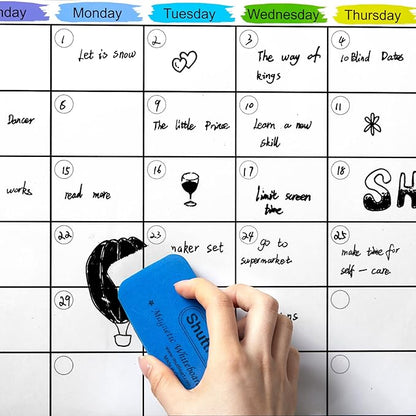 nday Monday Tuesday Wednesday Thursday
1 2 3 4
Let is snow
The way of
kings
10 Blind Dates
6 9 10 11
Dancer
The little Prince
Learn a now
skill
15 16 17 18
works
read more
Limit screen
time
SH
22 23 24 25
maker set
go to
supermarket
make time for
self-care
29
Shutt
Magnetic Whiteboa